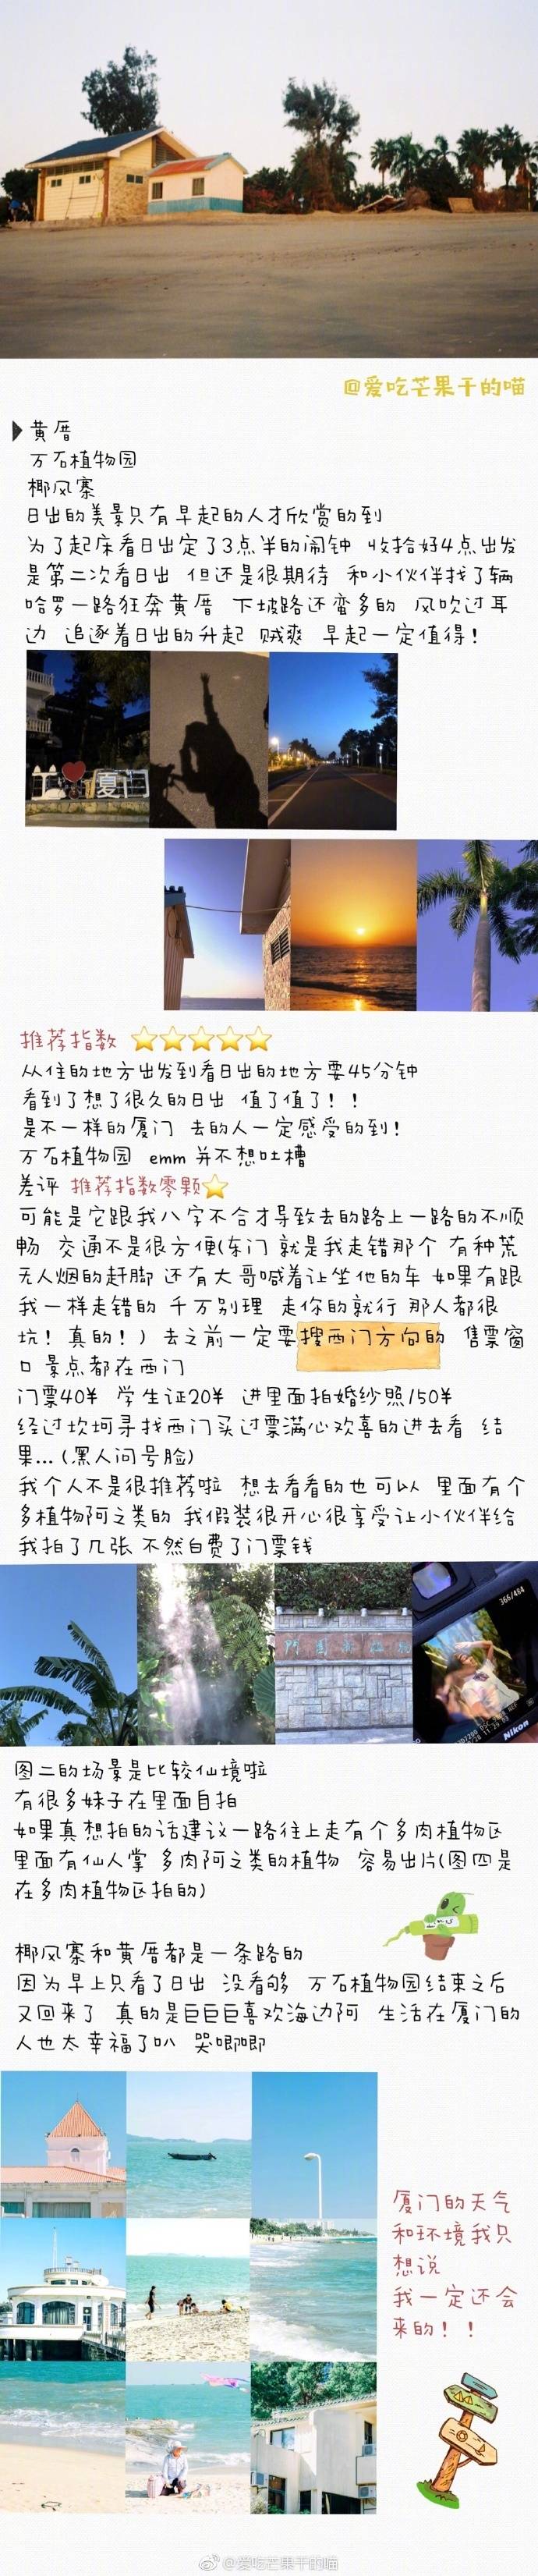 @爱吃芒果干的喵
黄厝
万石植物园
椰风寨
日出的美景只有早起的人才欣赏的到
为了起床看日出定了3点半的闹钟 收拾好4点出发
是第二次看日出 但还是很期待 和小伙伴找了辆
哈罗一路狂奔黄厝 下坡路还蛮多的 风吹过耳
边 追逐着日出的升起 贼爽 早起一定值得!
厦门
推荐指数 ⭐⭐⭐⭐⭐
从住的地方出发到看日出的地方要45分钟
看到了想了很久的日出 值了值了!!
是不一样的厦门 去的人一定感受的到!
万石植物园 emm 并不想吐槽
差评 推荐指数零颗⭐
可能是它跟我八字不合才导致去的路上一路的不顺
畅 交通不是很方便(东门 就是我走错那个 有种荒
无人烟的赶脚 还有大哥喊着让坐他的车 如果有跟
我一样走错的 千万别理 走你的就行 那人都很
坑! 真的!) 去之前一定要搜西门方向的 售票窗
口 景点都在西门
门票40¥ 学生证20¥ 进里面拍婚纱照150¥
经过坎坷寻找西门买过票满心欢喜的进去看 结
果...(黑人问号脸)
我个人不是很推荐啦 想去看看的也可以 里面有个
多植物阿之类的 我假装很开心很享受让小伙伴给
我拍了几张 不然白费了门票钱
366/484
Nikon
图二的场景是比较仙境啦
有很多妹子在里面自拍
如果真想拍的话建议一路往上走有个多肉植物区
里面有仙人掌 多肉阿之类的植物 容易出片(图四是
在多肉植物区拍的)
椰风寨和黄厝都是一条路的
因为早上只看了日出 没看够 万石植物园结束之后
又回来了 真的是巨巨巨喜欢海边阿 生活在厦门的
人也太幸福了叭 哭唧唧
厦门的天气
和环境我只
想说
我一定还会
来的!!
@爱吃芒果干的喵